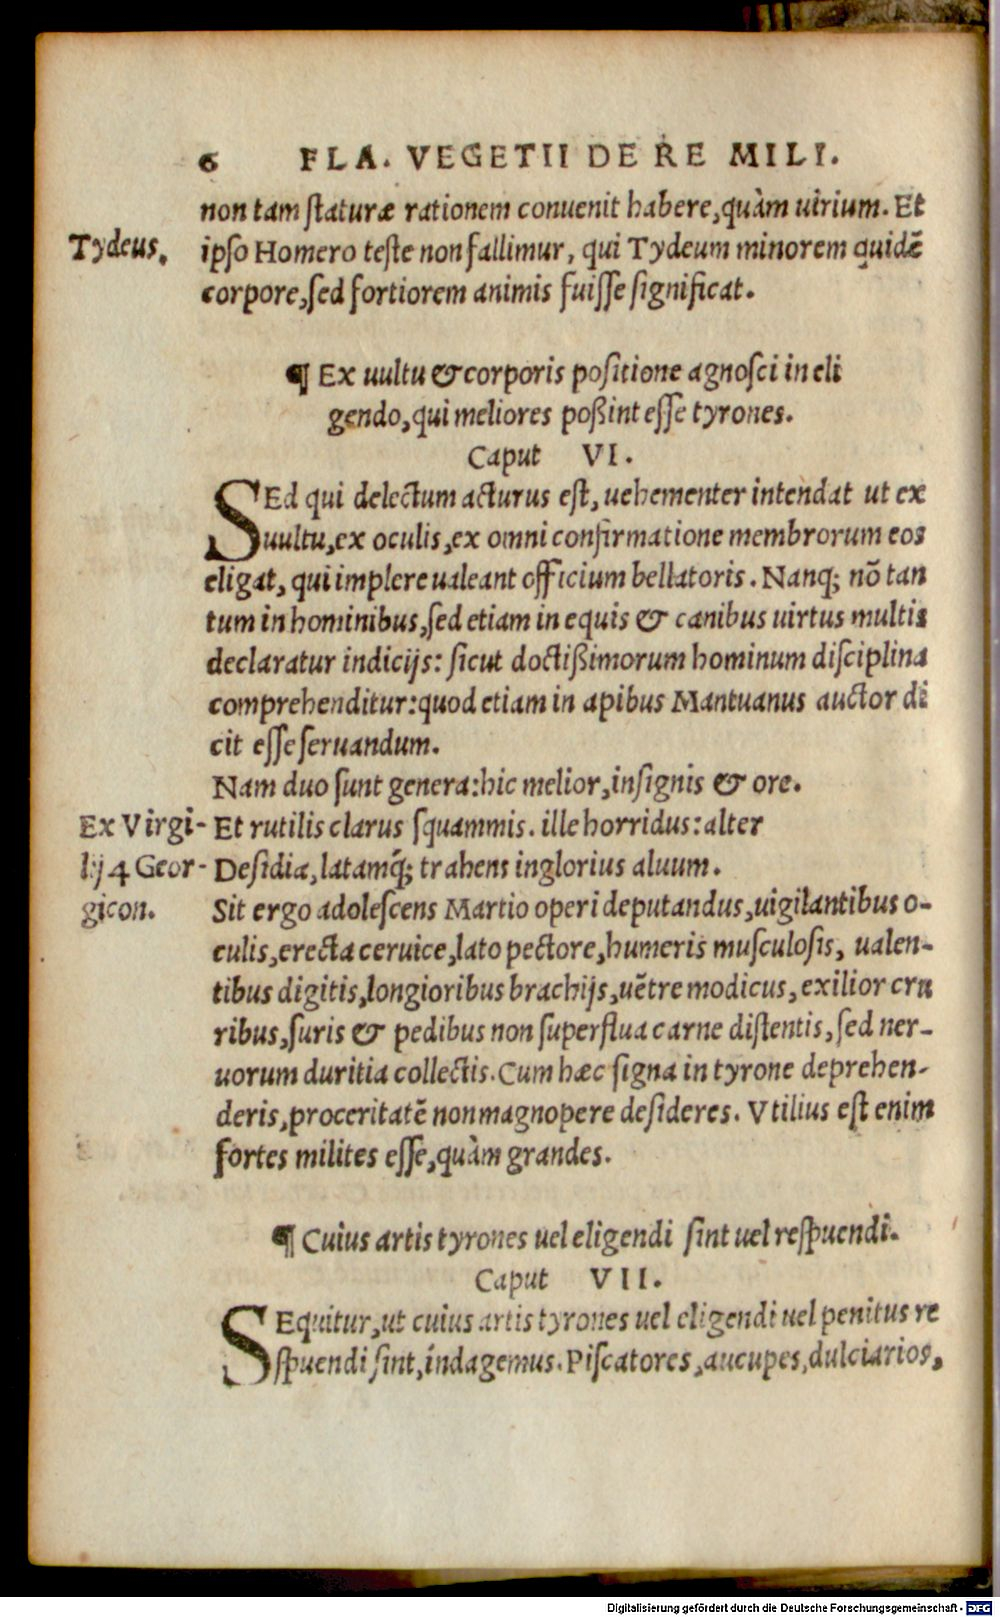 6 FLA. VEGETII DE RE MILI.
non tam staturæ rationem conuenit habere, quàm uirium. Et
Tydeus.
ipso Homero teste non fallimur, qui Tydeum minorem quidē
corpore, sed fortiorem animis fuisse significat.
¶ Ex uultu & corporis positione agnosci in eli
gendo, qui meliores poßint esse tyrones.
Caput VI.
SEd qui delectum acturus est, uehementer intendat ut ex
uultu, ex oculis, ex omni confirmatione membrorum eos
eligat, qui implere ualeant officium bellatoris. Nanq; nō tan
tum in hominibus, sed etiam in equis & canibus uirtus multis
declaratur indicijs: sicut doctißimorum hominum disciplina
comprehenditur: quod etiam in apibus Mantuanus auctor di
cit esse seruandum.
Nam duo sunt genera: hic melior, insignis & ore.
Ex Virgi-
Et rutilis clarus squammis. ille horridus: alter
lij 4 Geor-
Desidia, latamq́; trahens inglorius aluum.
gicon.
Sit ergo adolescens Martio operi deputandus, uigilantibus o-
culis, erecta ceruice, lato pectore, humeris musculosis, ualen-
tibus digitis, longioribus brachijs, uētre modicus, exilior cru
ribus, suris & pedibus non superflua carne distentis, sed ner-
uorum duritia collectis. Cum hæc signa in tyrone deprehen-
deris, proceritatē non magnopere desideres. Vtilius est enim
fortes milites esse, quàm grandes.
¶ Cuius artis tyrones uel eligendi sint uel respuendi.
Caput VII.
SEquitur, ut cuius artis tyrones uel eligendi uel penitus re
spuendi sint, indagemus. Piscatores, aucupes, dulciarios,
Digitalisierung gefördert durch die Deutsche Forschungsgemeinschaft - DFG